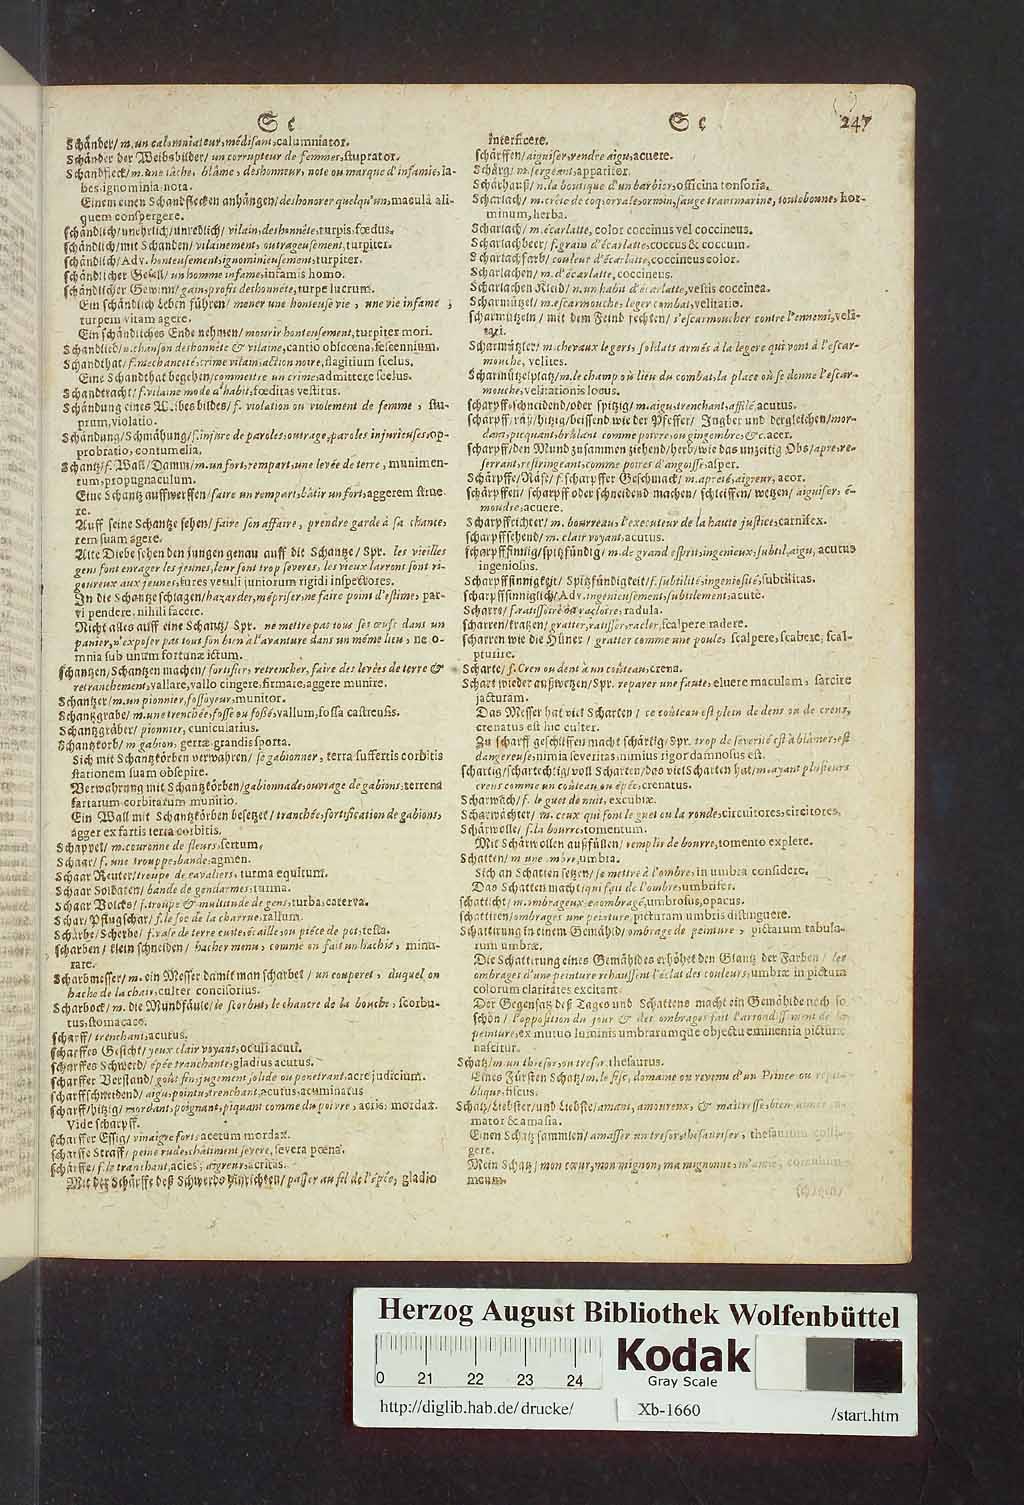 Sc
Schänder/ m. un calomniateur, médisant, calumniator.
Schänder der Weibsbilder/ un corrupteur de femmes, stuprator.
Schandfleck/ m. une tâche, blâme, deshonneur, note ou marque d'infamie, la-
bes, ignominia, nota.
Einem einen Schandflecken anhängen/ deshonorer quelqu'un, maculâ ali-
quem conspergere.
schändlich/ unehrlich/ unredlich/ vilain, deshonnête, turpis, fœdus.
schändlich/ mit Schanden/ vilainement, outrageusement, turpiter.
schändlich/ Adv. honteusement, ignominieusement, turpiter.
schändlicher Gesell/ un homme infame, infamis homo.
schändlicher Gewinn/ gain, profit deshonnête, turpe lucrum.
Ein schändlich Leben führen/ mener une honteuse vie, une vie infame,
turpem vitam agere.
Ein schändliches Ende nehmen/ mourir honteusement, turpiter mori.
Schandlied/ n. chanson deshonnête & vilaine, cantio obscœna, fescennium.
Schandthat/ f. mechanceté, crime vilain, action noire, flagitium scelus.
Eine Schandthat begehen/ commettre un crime, admittere scelus.
Schandtracht/ f. vilaine mode d'habit, fœditas vestitus.
Schändung eines Weibesbildes/ f. violation ou violement de femme, stu-
prum, violatio.
Schändung/ Schmähung/ f. injure de paroles, outrage, paroles injurieuses, op-
probratio, contumelia.
Schantz/ f. Wall/ Damm/ m. un fort, rempart, une levée de terre, munimen-
tum, propugnaculum.
Eine Schantz auffwerffen/ faire un rempart, bâtir un fort, aggerem strue-
re.
Auff seine Schantze sehen/ faire son affaire, prendre garde à sa chance,
rem suam agere.
Alte Diebe sehen den jungen genau auff die Schantze/ Spr. les vieilles
gens font enrager les jeunes, leur sont trop severes, les vieux larrons sont ri-
goureux aux jeunes, fures vetuli juniorum rigidi inspectores.
In die Schantze schlagen/ hazarder, mépriser, ne faire point d'estime, par-
vi pendere, nihili facere.
Nicht alles auff eine Schantz/ Spr. ne mettre pas tous ses œufs dans un
panier, n'exposer pas tout son bien à l'avanture dans un même lieu, ne o-
mnia sub unam fortunæ ictum.
schantzen/ Schantzen machen/ fortifier, retrencher, faire des levées de terre &
retranchement, vallare, vallo cingere, firmare, aggere munire.
Schantzer/ m. un pionnier, fossoyeur, munitor.
Schantzgrabe/ m. une trenchée, fosse ou fossé, vallum, fossa castrensis.
Schantzgräber/ pionnier, cunicularius.
Schantzkorb/ m. gabion, gerræ, grandis sporta.
Sich mit Schantzkörben verwahren/ se gabionner, terra suffertis corbitis
stationem suam obsepire.
Verwahrung mit Schantzkörben/ gabionnade, ouvrage de gabions, terrena
fartarum corbitarum munitio.
Ein Wall mit Schantzkörben besetzet/ tranchée, fortification de gabions,
agger ex fartis terra corbitis.
Schappel/ m. couronne de fleurs, sertum.
Schaar/ f. une trouppe, bande, agmen.
Schaar Reuter/ troupe de cavaliers, turma equitum.
Schaar Soldaten/ bande de gendarmes, turma.
Schaar Volcks/ f. troupe & multitude de gens, turba, caterva.
Schar/ Pflugschar/ f. le soc de la charrue, rallum.
Schärbe/ Scherbe/ f. vase de terre cuite, écaille, ou piéce de pot, testa.
scharben/ klein schneiden/ hacher menu, comme on fait un hachis, minu-
rare.
Scharbmesser/ m. ein Messer damit man scharbet/ un couperet, duquel on
hache de la chair, culter concisorius.
Scharbock/ m. die Mundfäule/ le scorbut, le chancre de la bouche, scorbu-
tus, stomacace.
scharff/ trenchant, acutus.
scharffes Gesicht/ yeux clair voyans, oculi acuti.
scharffes Schwerd/ épée tranchante, gladius acutus.
scharffer Verstand/ goût fin, jugement solide ou penetrant, acre judicium.
scharffschneidend/ aigu, pointu, trenchant, acutus, acuminatus
scharff/ hitzig/ mordant, poignant, piquant comme du poivre, acris, mordax.
Vide scharpff.
scharffer Essig/ vinaigre fort, acetum mordax.
scharffe Straff/ peine rude, châtiment severe, severa pœna.
schärffe/ f. le tranchant, acies, aigreur, acritas.
Mit der Schärffe deß Schwerds hinrichten/ passer au fil de l'épée, gladio
Sc
247
interficere.
schärffen/ aiguiser, rendre aigu, acuere.
Schärg/ m. sergeant, apparitor.
Schärhauß/ n. la boutique d'un barbier, officina tonsoria.
Scharlach/ m. crête de coq, orvale, ormin, sauge transmarine, toutebonne, hor-
minum, herba.
Scharlach/ m. écarlatte, color coccinus vel coccineus.
Scharlachbeer/ f. grain d'écarlatte, coccus & coccum.
Scharlachfarb/ couleur d'écarlatte, coccineus color.
Scharlachen/ m. d'écarlatte, coccineus.
Scharlachen Kleid/ n. un habit d'écarlatte, vestis coccinea.
Scharmützel/ m. escarmouche, leger combat, velitatio.
scharmützeln/ mit dem Feind fechten/ s'escarmoucher contre l'ennemi, veli-
tari.
Scharmützler/ m. chevaux legers, soldats armés à la legere qui vont à l'escar-
mouche, velites.
Scharmützelplatz/ m. le champ où lieu du combat, la place où se donne l'escar-
mouche, velitationis locus.
scharpff, schneidend/ oder spitzig/ m. aigu, trenchant, affilé, acutus.
scharpff/ räß/ hitzig/ beissend wie der Pfeffer/ Ingber und dergleichen/ mor-
dant, picquant, brûlant comme poivre, ou gingembre, &c. acer.
scharpff/ den Mund zusammen ziehend/ herb/ wie das unzeitig Obs/ apre, re-
serrant, restringeant, comme poires d'angoisse, asper.
Schärpffe/ Räse/ f. scharpffer Geschmack/ m. apreté, aigreur, acor.
schärpffen/ scharpff oder schneidend machen/ schleiffen/ wetzen/ aiguiser, é-
moudre, acuere.
Scharpffrichter/ m. bourreau, l'executeur de la haute justice, carnifex.
scharpffsehend/ m. clair voyant, acutus.
scharpffsinnig/ spitzfündig/ m. de grand esprit, ingenieux, subtil, aigu, acutus
ingeniosus.
Scharpffsinnigkeit/ Spitzfündigkeit/ f. subtilité, ingeniosité, subtilitas.
scharpffsinniglich/ Adv. ingenieusement, subtilement, acutè.
Scharre/ f. ratissoire ou racloire, radula.
scharren/ kratzen/ gratter, ratisser, racler, scalpere, radere.
scharren wie die Hüner/ gratter comme une poule, scalpere, scabere, scal-
pturire.
Scharte/ f. Cren ou dent à un coûteau, crena.
Schart wieder außwetzen/ Spr. reparer une faute, eluere maculam, sarcire
jacturam.
Das Messer hat viel Scharten/ ce coûteau est plein de dens ou de crens,
crenatus est hic culter.
Zu scharff geschliffen macht schärtig/ Spr. trop de severité est à blâmer, est
dangereuse, nimia severitas, nimius rigor damnosus est.
schartig/ schartechtig/ voll Scharten/ das viel Scharten hat/ m. ayant plusieurs
crens comme un coûteau ou épée, crenatus.
Scharwach/ f. le guet de nuit, excubiæ.
Scharwächter/ m. ceux qui font le guet ou la ronde, circuitores, circitores.
Schärwolle/ f. la bourre, tomentum.
Mit Schärwollen außfüllen/ remplir de bourre, tomento explere.
Schatten/ m une ombre, umbra.
Sich an Schatten setzen/ se mettre à l'ombre, in umbra considere.
Das Schatten macht/ qui fait de l'ombre, umbrifer.
schatticht/ m. ombrageux, enombragé, umbrosus, opacus.
schattiren/ ombrager une peinture, picturam umbris distinguere.
Schattirung in einem Gemähld/ ombrage de peinture, pictarum tabula-
rum umbræ.
Die Schattirung eines Gemähldes erhöhet den Glantz der Farben/ les
ombrages d'une peinture rehaussent l'éclat des couleurs, umbræ in pictura
colorum claritates excitant.
Der Gegensatz deß Tages und Schattens macht ein Gemählde noch so
schön/ l'opposition du jour & des ombrages fait l'arrondissement de la
peinture, ex mutuo luminis umbrarumque objectu eminentia picturæ
nascitur.
Schatz/ m. un thresor, ou tresor, thesaurus.
Eines Fürsten Schatz/ m. le fisc, domaine ou revenu d'un Prince ou repu-
blique, fiscus.
Schatz/ Liebster/ und Liebste/ amant, amoureux, & maîtresse, bien-aimée
mator & amasia.
Einen Schatz sammlen/ amasser un tresor, thesauriser, thesaurum colli-
gere.
Mein Schatz/ mon cœur, mon mignon, ma mignonne, m'amie, corculum
meum.
Herzog August Bibliothek Wolfenbüttel
0 21 22 23 24
Kodak
Gray Scale
http://diglib.hab.de/drucke/
Xb-1660
/start.htm